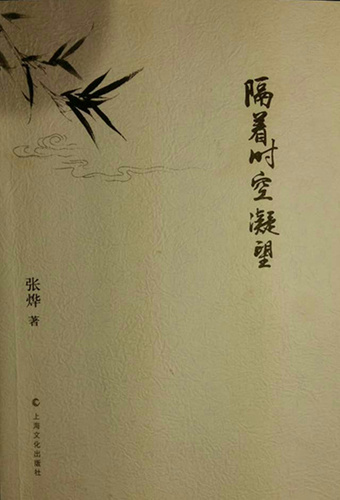 隔着时空凝望
张烨 著
上海文化出版社